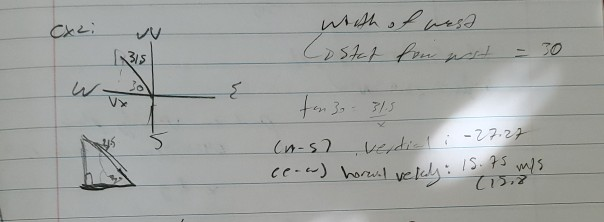 Ex2:
N
315
W 30 E
Vx
S
315
North of west
Start from west = 30
tan 30 = 315/x
(n-s) vertical: -27.27
(e-w) horizontal velocity: 15.75 m/s
(15.8